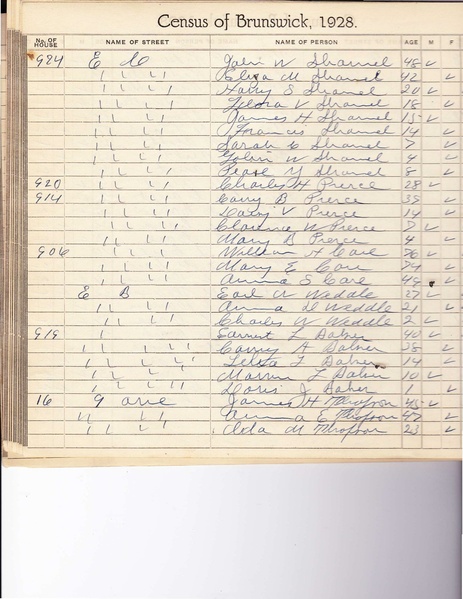 Census of Brunswick, 1928.
No. OF HOUSE NAME OF STREET NAME OF PERSON AGE M F
924 E John W Shamel 48 ✓
" " " Eliza M Shamel 42 ✓
" " " Harry S Shamel 20 ✓
" " " V Shamel 18 ✓
" " " James H Shamel 15 ✓
" " " Francis Shamel 14 ✓
" " " Sarah C Shamel 7 ✓
" " " John W Shamel 4 ✓
" " " Y Shamel 8 ✓
920 " " " Charles H Pierce 28 ✓
914 " " " Carry B Pierce 39 ✓
" " " V Pierce 14 ✓
" " " Clarence W Pierce 7 ✓
" " " Mary B Pierce 4 ✓
906 " " " William H Care 76 ✓
" " " Mary E Care 74 ✓
" " " Anna S Care 49 ✓
E B Earl W Weddle 27 ✓
" " " Anna Weddle 21 ✓
" " " Charles W Weddle 2 ✓
919 " Earnest L Baker 40 ✓
" " " Carrey A Baker 38 ✓
" " " F Baker 14 ✓
" " " Marvin L Baker 10 ✓
" " " Doris J Baker 1 ✓
16 9 ave James H 45 ✓
" " " Anna E 47 ✓
" " " Ada M 23 ✓